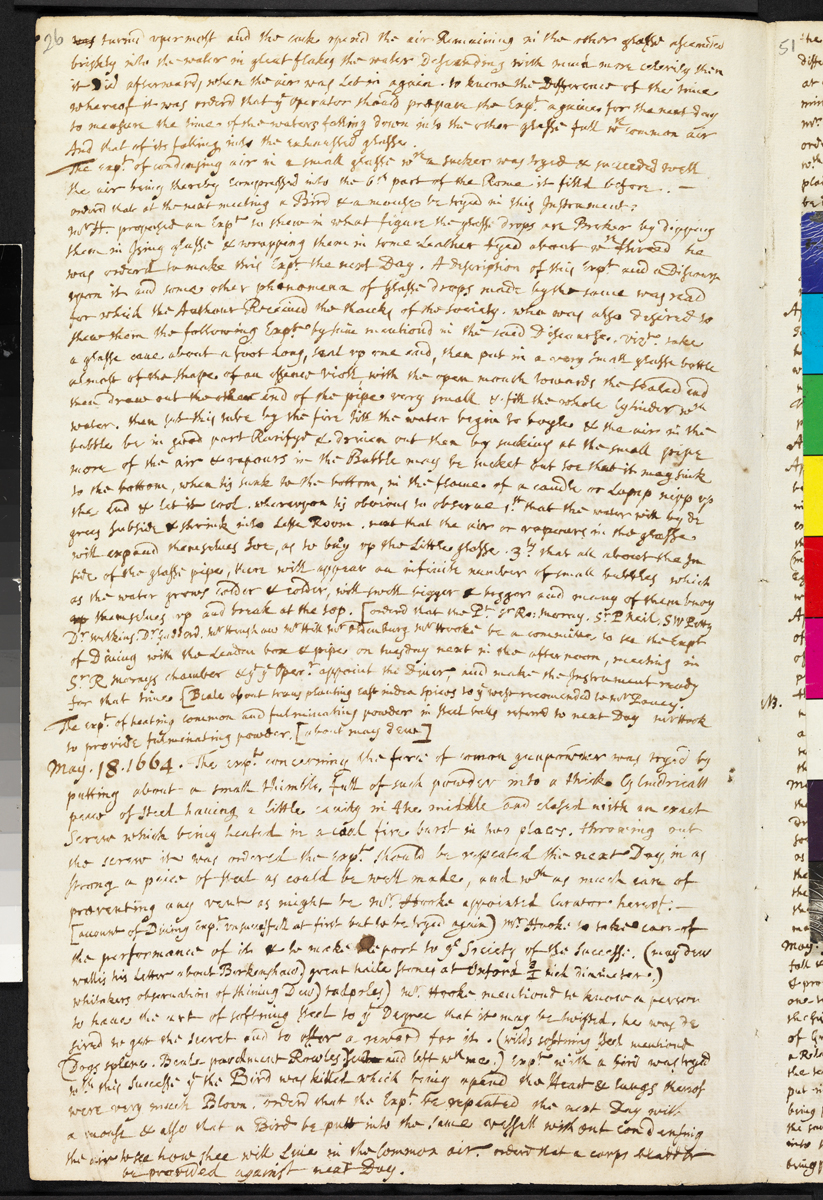 26
turnd upermost and the cock opend the air Remaining in the other glasse ascended
briskly into the water in great flakes the water Descending with much more celerity then
it did afterward, when the air was Let in again. to know the Difference of the time
whereof it was orderd that ye operator should prepare the Expt. againe for the next day
to measure the time of the waters falling down into the other glasse full wth common air
And that of its falling into the exhausted glasse.
The expt. of condensing air in a small glasse wth a sucker was tryed & succeeded well
the air being thereby compressed into the 6th part of the Roome it filld before. . —
orderd that at the next meeting a Bird & a mouse be tryed in this Instrument:
mr. H. proposed an Expt. to shew in what figure the glasse drops are Broken by dipping
them in Ising glasse & wrapping them in some Leather tyed about wth thread he
was orderd to make this Expt. the next Day. A discription of this Expt. and a Discourse
upon it and some other phenomena of glasse drops made by the same was read
for which the Authour Received the thanks of the society. who was also desired to
shew them the following Expts. by him mentiond in the said Discourse. vizt. take
a glasse cane about a foot Long, seal up one end, then put in a very small glasse bottle
almost of the shape of an essence violl, with the open mouth towards the sealed end
then draw out the other end of the pipe very small & fill the whole Cylinder wth
water. then set this tube by the fire till the water begin to boyle & the air in the
bubble be in good part Rarifyd & driven out then by sucking at the small pipe
more of the air & vapours in the Bubble may be suckt out soe that it may sink
to the bottom, when tis sunk to the bottom, in the flame of a candle or Lamp nipp up
the End & let it cool. whereupon tis obvious to observe 1st that the water will by de
grees subside & shrink into Lesse Roome. next that the air or vapours in the glasse
will expand themselves soe, as to buoy up the Little glasse. 3ly that all about the In
side of the glasse pipe, there will appear an infinite number of small bubbles which
as the water grows colder & colder, will swell bigger & bigger and many of them buoy
themselves up and break at the top. [orderd that the Pt. Sr Ro: moray, Sr P Neil, Sr W Petty
Dr. Wilkins, Dr. Goddard, mr Henshaw mr Hill mr oldenburg mr Hooke be a committee to see the Expt
of Diving with the Leaden box & pipes on tuesday next in the afternoon, meeting in
Sr. R morays chamber & yt ye Opert. appoint the Diver, and make the Instrument ready
for that time. [Beale about transplanting east india spices to ye west recomended to mr Povey.
The expt. of heating common and fulminating powder in steel balls referred to next Day mr Hook
to provide fulminating powder. [about may dew]
May. 18. 1664. The expt. concerning the force of comon gunpowder was tryd by
putting about a small thimble full of such powder into a thick Cylindricall
peece of steel having a little cavity in the middle and closed with an exact
Screw which being heated in a coal fire burst in two places. throwing out
the screw it was ordered the expt. should be repeated the next Day, in as
strong a peice of steel as could be well made, and wth as much care of
preventing any vent as might be mr. Hooke appointed Curator hereof: —
[account of Diving Expt. unsuccesfull at first but to be tryed again) mr. Hooke to take care of
the performance of it & to make Report to ye Society of the Successe. (may dew
wallis his letter about Berkenshaw) great haile stones at Oxford 3/4 inch diameter.)
whitakers observation of shining Dew) tadpoles) mr. Hooke mentiond to know a person
to have the art of softning steel to yt Degree that it may be twisted. he was de
sired to get the secret and to offer a reward for it. (wilds softning steel mentiond
(Dogs spleen. Beale parchment Rowles and left wth me.) Expt. with a bird was tryed
wth this Successe yt the Bird was killed which being opend the Heart & lungs therof
were very much Blown. orderd that the Expt. be repeated the next Day with
a mouse & also that a Bird be putt into the same vessell without condensing
the air to see how shee will Live in the common air. orderd that a carps bladder
be provided against next Day.
51